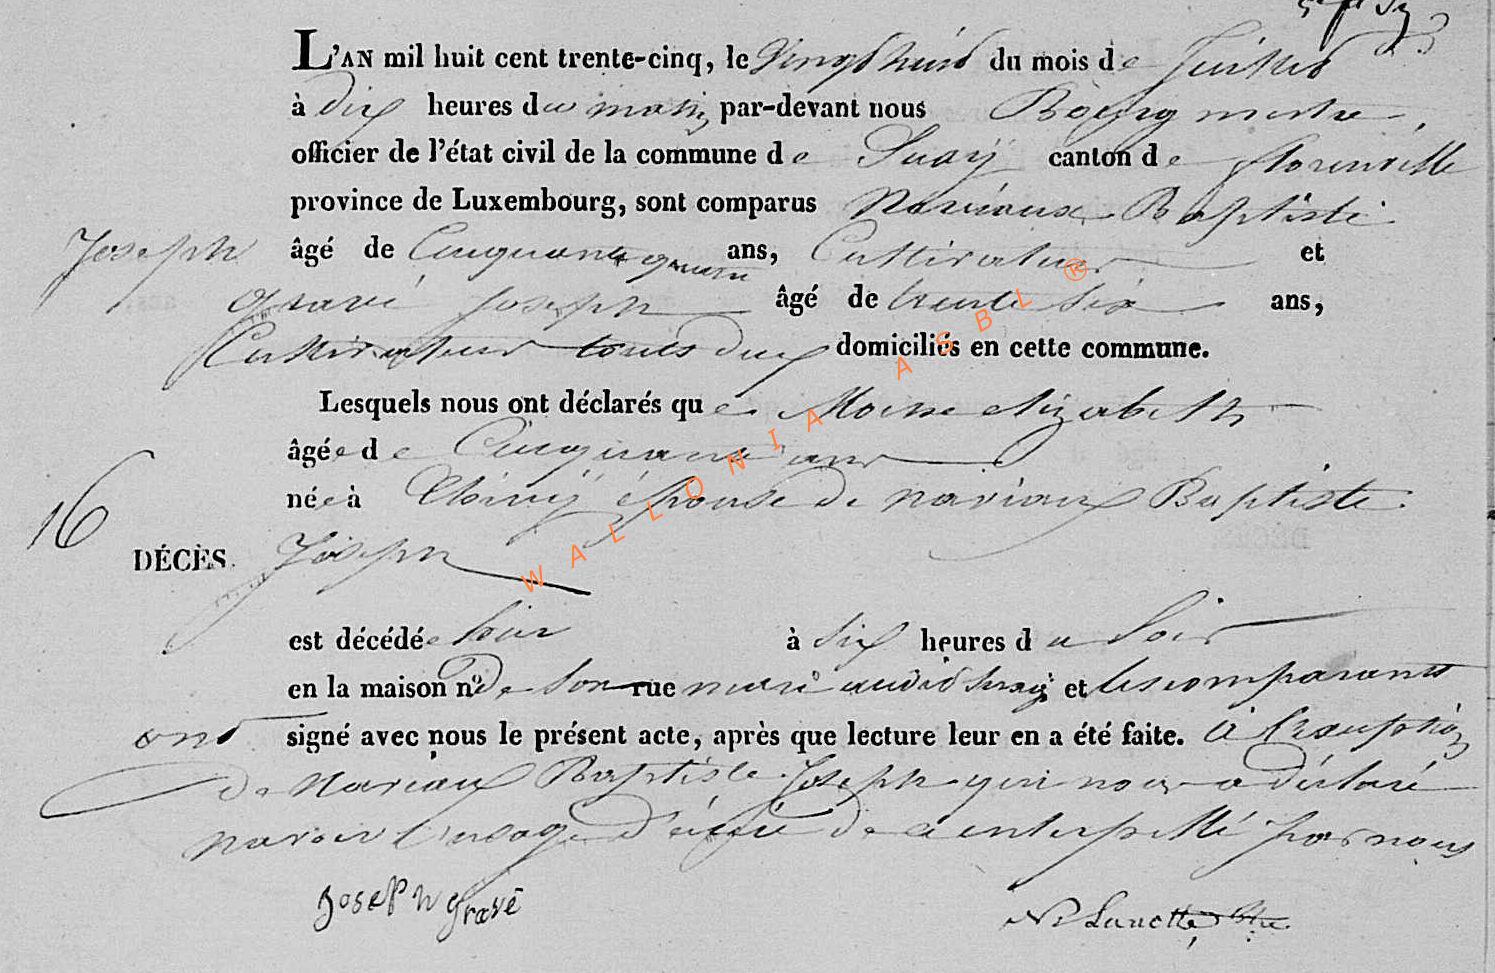 L'AN mil huit cent trente-cinq, le vingt huit du mois de Juillet
à dix heures du matin par-devant nous Bourgmestre,
officier de l'état civil de la commune de Suxÿ canton de florenville
province de Luxembourg, sont comparus Naviaux Baptiste
Joseph âgé de Cinquante quatre ans, Cultivateur et
gravé joseph âgé de trente six ans,
Cultivateur touts deux domiciliés en cette commune.
Lesquels nous ont déclarés que Moine elizabeth
âgée de Cinquante ans
née à Chiny épouse de naviaux Baptiste
16
DÉCÈS. Joseph
est décédée hier à Six heures du Soir
en la maison nº de Son rue mari audit Suxÿ et les comparants
ont signé avec nous le présent acte, après que lecture leur en a été faite. à l'exception
de Naviaux Baptiste Joseph qui nous a déclaré
navoir l'usage d'écrire de ce interpellé par nous
Joseph gravé
Lanotte
WALLONIA ASBL ®